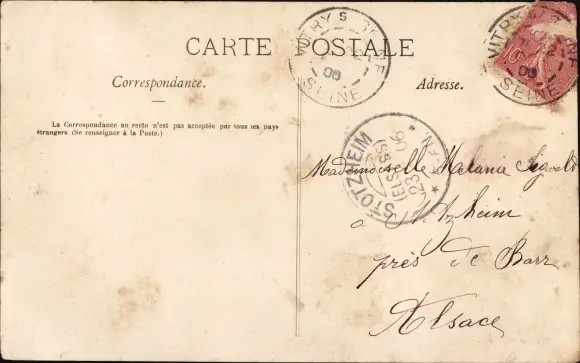 CARTE POSTALE
Correspondance.
La Correspondance au recto n'est pas acceptée par tous les pays
étrangers. (Se renseigner à la Poste.)
Adresse.
VITRY S SEINE
06
SEINE
VITRY S SEINE
12
06
SEINE
10
STOTZHEIM
(ELS
23
06
Mademoiselle Melanie
à Stotzheim
près de Barr
Alsace